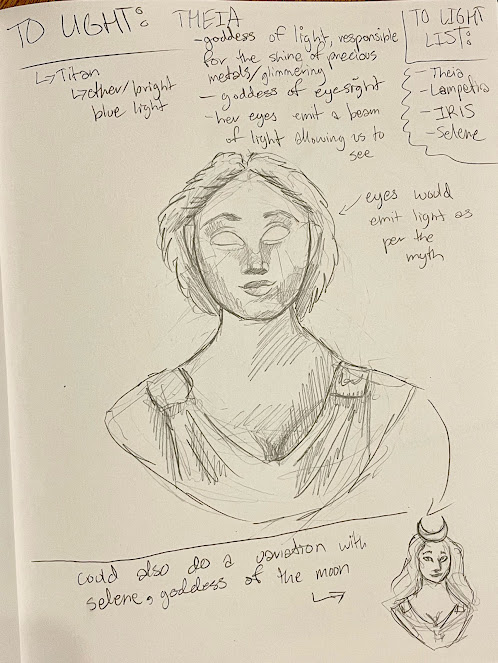 TO LIGHT:
↳ Titan
↳ other/bright
blue light
THEIA
- goddess of light, responsible
for the shine of precious
metals/glimmering
- goddess of eyesight
- her eyes emit a beam
of light allowing us to
see
TO LIGHT
LIST:
- Theia
- Lampetia
- IRIS
- Selene
eyes would
emit light as
per the
myth
could also do a variation with
selene, goddess of the moon